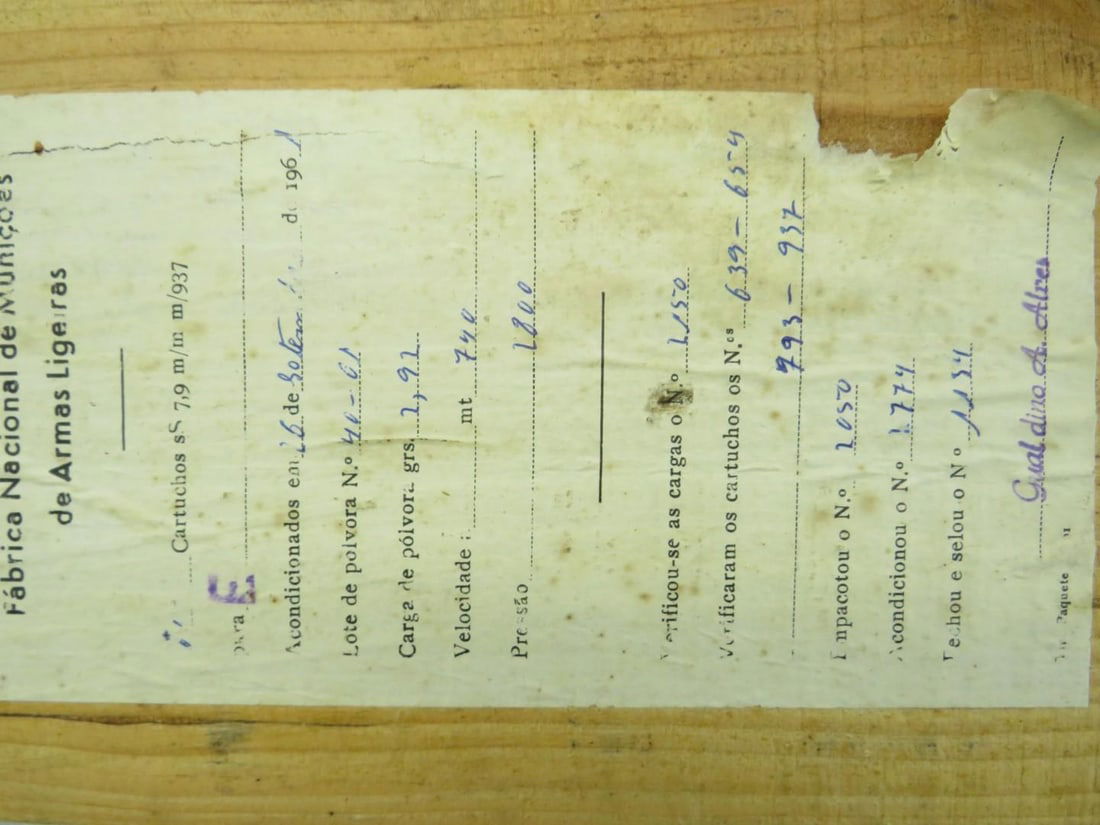 Fábrica Nacional de Munições
de Armas Ligeiras
Cartuchos sS 7,9 m/m m/937
para E
Acondicionados em 26 de Setembro de 1961
Lote de polvora N.º 40-61
Carga de pólvora grs. 2,92
Velocidade : mt 740
Pressão 2800
Verificou-se as cargas o N.º 2150
Verificaram os cartuchos os N.ºs 639 - 654
793 - 937
Empacotou o N.º 2050
Acondicionou o N.º 2774
Fechou e selou o N º 1134
Gualdino A. Alves
Paquete